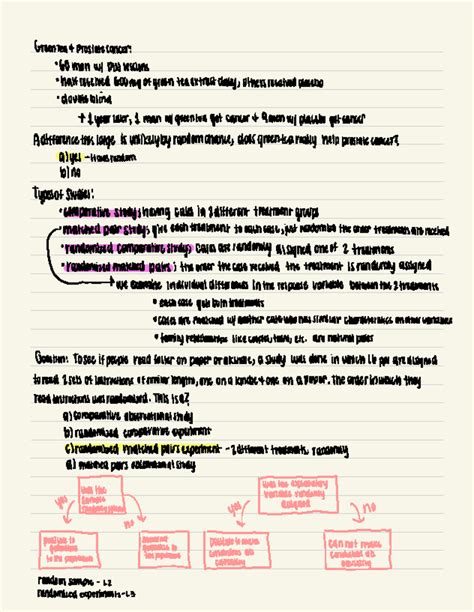 Green Tea & Prostate Cancer:
• 60 men w/ PIN lesions
• half received 600mg of green tea extract daily, others received placebo
• double blind
→ 1 year later, 1 man w/ green tea got cancer & 9 men w/ placebo got cancer
A difference this large is unlikely by random chance, does green tea really help prostate cancer?
a) yes - it was random
b) no
Types of Studies:
• comparative study: having cases in 2 different treatment groups
• matched pair study: give each treatment to each case, just randomize the order treatments are received
• randomized comparative study: cases are randomly assigned one of 2 treatments
• randomized matched pairs: the order the case received the treatment is randomly assigned
we examine individual differences in the response variable between the 2 treatments
• each case gets both treatments
• cases are matched w/ another case who has similar characteristics on other variables
• family relationships like couples, twins, etc. are natural pairs
Question: To see if people read faster on paper or a kindle, a study was done in which 16 ppl are assigned
to read 2 sets of instructions of similar lengths, one on a kindle & one on a paper. The order in which they
read instructions was randomized. This is a?
a) comparative observational study
b) randomized comparative experiment
c) randomized matched pairs experiment - 2 different treatments, randomly
d) matched pairs observational study
was the sample randomly
yes
no
to the population
to the population
was the explanatory variable randomly assigned
yes
no
possible to make conclusions about causality
can not make conclusions about causality
random sample - L2
randomized experiments - L3